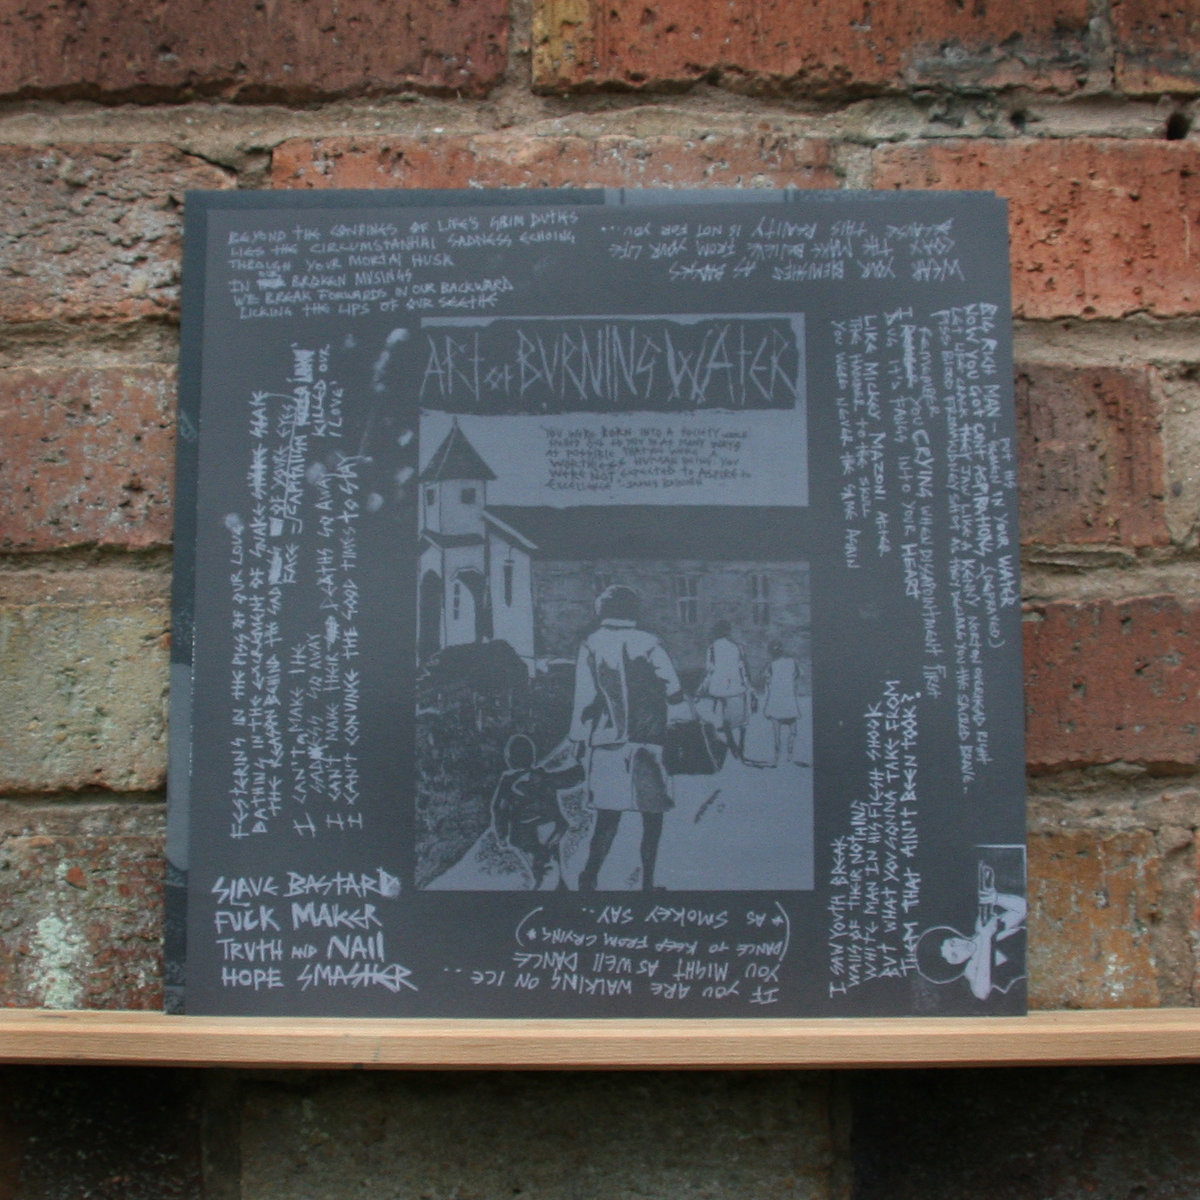 BEYOND THE CONFINES OF LIFE'S GRIM DUTIES
LIES THE CIRCUMSTANTIAL SADNESS ECHOING
THROUGH YOUR MORTAL HUSK
IN BROKEN MUSINGS
WE BREAK FORWARDS IN OUR BACKWARD
LICKING THE LIPS OF OUR SEETHE
WEAR YOUR BEAUTIES AS
COAX THE MAKE BELIEVE FROM YOUR LIFE
BECAUSE THIS REALITY IS NOT FOR YOU...
ART OF BURNING WATER
"YOU WERE BORN INTO A SOCIETY WHICH
SPELLED OUT TO YOU IN AS MANY WAYS
AS POSSIBLE THAT YOU WERE A
WORTHLESS HUMAN BEING. YOU
WERE NOT EXPECTED TO ASPIRE TO
EXCELLENCE" - JAMES BALDWIN
FESTERING IN THE PISS OF OUR LOVE
BATHING IN THE EXCREMENT OF SNAKE
THE REASON BEHIND THE SAD OF YOUR EYES
FACE
I CAN'T MAKE THE
GO AWAY
I CAN'T MAKE THEIR DEATHS GO AWAY KILLED OUR
I CAN'T CONVINCE THE GOOD TIMES TO STAY 'I LOVE'
PUT THIS
BIG RICH MAN - AGAIN IN YOUR WATER
NOW YOU GOT CUNT ASPIRATIONS
LIKE A KENY NORTON OVERHEAD RIGHT
THIS SACRED BRAVE.
REMEMBER YOU CRYING WHEN DISAPPOINTMENT FIRST
I
BUT IT'S FANGS INTO YOUR HEART
LIKE MICKEY MAZONI AFTER
THE HAMMER TO THE SKULL
YOU WERE NEVER THE SAME AGAIN
I SAW YOUTH BREAK
WALLS OF THEIR NOTHING
WHITE MAN IN HIS FLESH SHOOK
BUT WHAT YOU GONNA TAKE FROM
THEM THAT AIN'T BEEN TOOK?
SLAVE BASTARD
FUCK MAKER
TRUTH AND NAIL
HOPE SMASHER
IF YOU ARE WALKING ON ICE...
YOU MIGHT AS WELL DANCE
(DANCE TO KEEP FROM CRYING*
*AS SMOKEY SAY..)